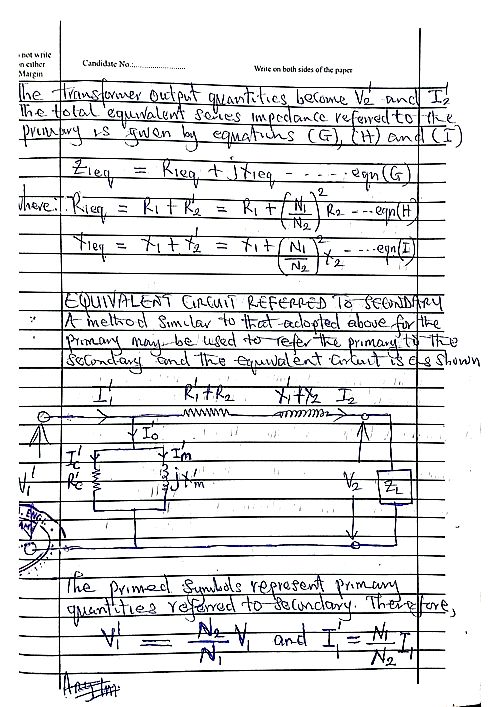 not write
n either
Margin
Candidate No.:
Write on both sides of the paper
The transformer output quantities become V₂' and I₂'
The total equivalent series impedance referred to the
primary is given by equations (G), (H) and (I)
Z1eq = R1eq + jX1eq - - - - - - eqn(G)
where: R1eq = R₁ + R₂' = R₁ + (N₁/N₂)² R₂ - - - eqn(H
X1eq = X₁ + X₂' = X₁ + (N₁/N₂)² X₂ - - - eqn(I)
EQUIVALENT CIRCUIT REFERRED TO SECONDARY
A method similar to that adopted above for the
primary may be used to refer the primary to the
secondary and the equivalent circuit is as shown
I₁' R₁'+R₂ X₁'+X₂ I₂
I₀'
Ic' Im'
Rc' jXm'
V₁' V₂ ZL
ENG
The primed symbols represent primary
quantities referred to secondary. Therefore,
V₁' = N₂/N₁ V₁ and I₁' = N₁/N₂ I₁